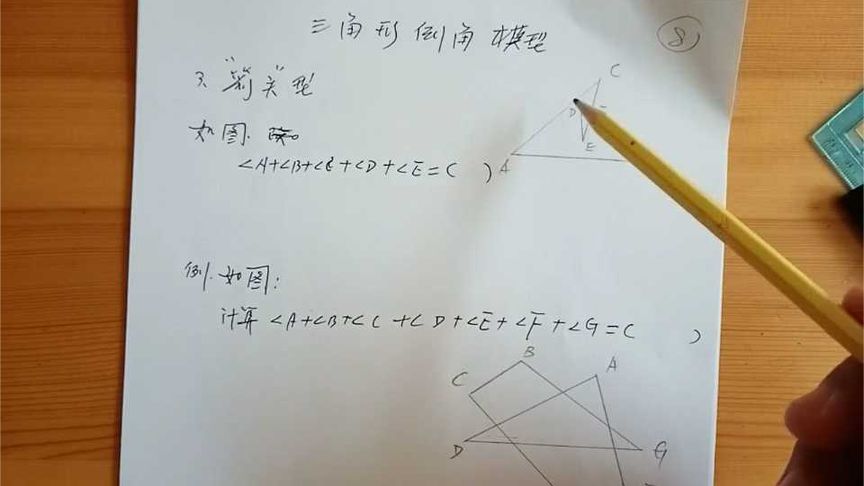 三角形倒角模型
8
3."箭头"型
如图.
∠A+∠B+∠C+∠D+∠E=( )
C
D
E
A
例.如图:
计算∠A+∠B+∠C+∠D+∠E+∠F+∠G=( )
B
A
C
D
G